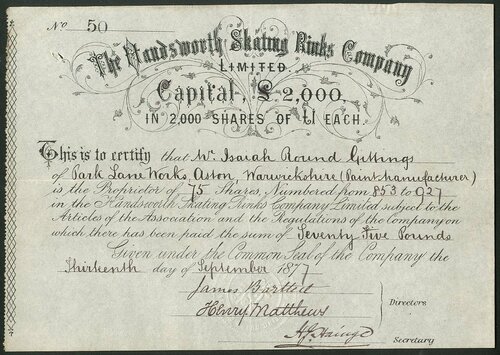 No 50
The Handsworth Skating Rinks Company
LIMITED
Capital, £2,000.
IN 2,000 SHARES OF £1 EACH.
This is to certify that Mr. Isaiah Round Gittings
of Park Lane Works, Aston, Warwickshire (Paint Manufacturer)
is the Proprietor of 75 Shares, Numbered from 853 to 927
in the Handsworth Skating Rinks Company Limited subject to the
Articles of the Association and the Regulations of the Company on
which there has been paid the sum of Seventy Five Pounds
Given under the Common Seal of the Company the
Thirteenth day of September 1877
James Bartlett
Henry Matthews
Directors
Secretary